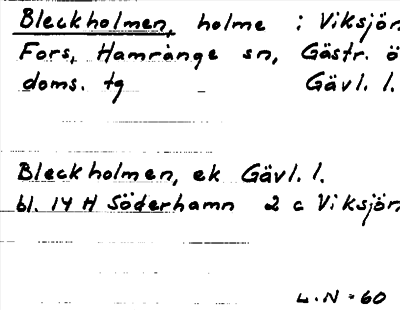 Bleckholmen, holme : Viksjön
Fors, Hamrånge sn, Gästr. ö
doms. tg – Gävl. l.
Bleckholmen, ek Gävl. l.
bl. 14 H Söderhamn 2 c Viksjön
L.N-60